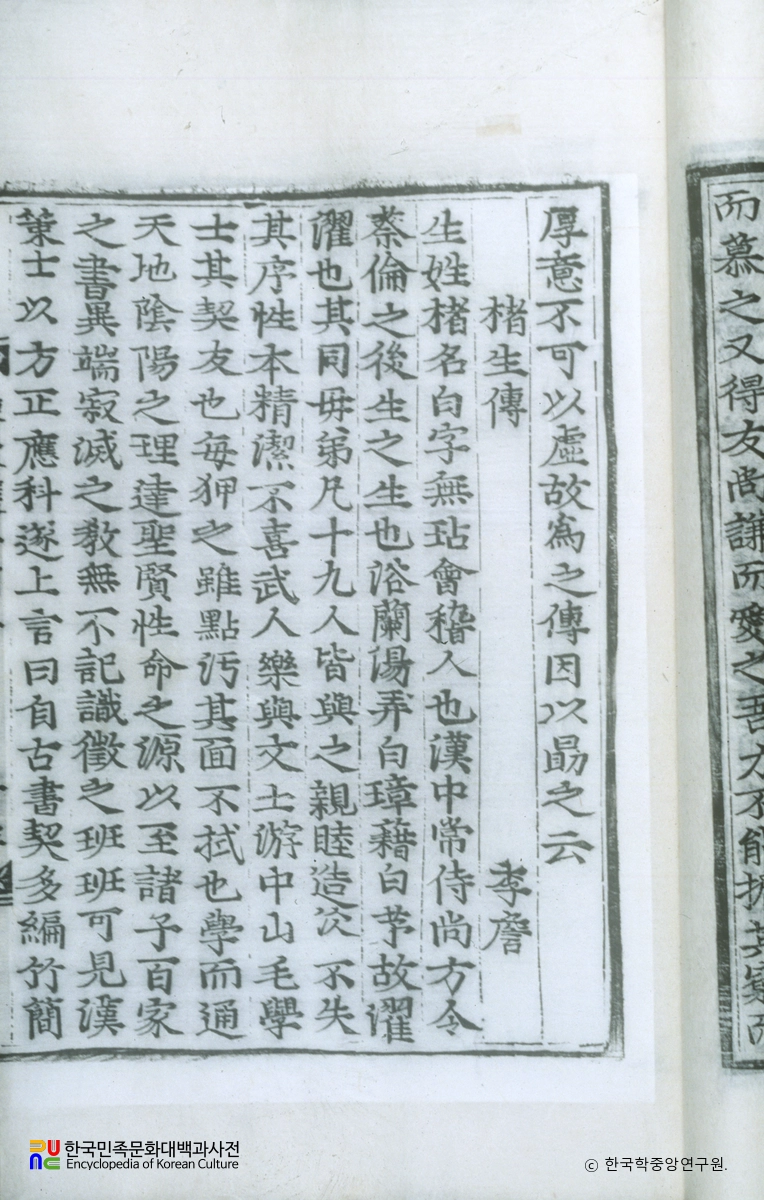 而慕之又得友尚謙而愛之吾力不能
厚意不可以虛故為之傳因以勗之云
楮生傳 李詹
生姓楮名白字無玷會稽人也漢中常侍尚方令
蔡倫之後生之生也浴蘭湯弄白璋藉白茅故濯
濯也其同毋弟凡十九人皆與之親睦造次不失
其序性本精潔不喜武人樂與文士游中山毛學
士其契友也每狎之雖點汚其面不拭也學而通
天地陰陽之理達聖賢性命之源以至諸子百家
之書異端寂滅之教無不記識徵之班班可見漢
策士以方正應科遂上言曰自古書契多編竹簡
한국민족문화대백과사전
Encyclopedia of Korean Culture
ⓒ 한국학중앙연구원.